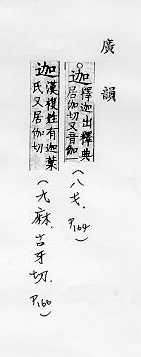 廣韻
迦釋迦出釋典
居伽切又音伽一
(八戈.P.164)
迦漢複姓有迦葉
氏又居伽切
(九麻.古牙切.P.166)